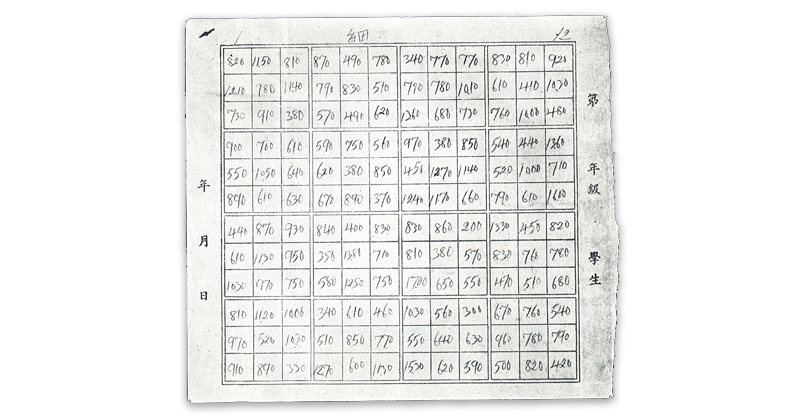 1 細 12
820 1150 810 870 490 780 340 770 770 830 810 920
1210 780 1140 790 830 510 790 780 1010 610 410 1030
730 910 380 570 490 620 1260 680 730 760 1000 480
900 700 610 590 750 560 970 380 850 540 440 1260
550 1050 640 620 380 850 450 1270 1140 520 1000 710
890 610 630 670 890 370 1240 1170 660 790 610 1600
440 870 930 840 400 830 830 860 200 1330 450 820
610 1130 950 350 1380 710 810 380 570 830 760 780
1030 970 750 580 1250 750 1700 650 550 470 510 680
810 1120 1000 340 610 460 1030 560 300 670 760 540
970 520 1030 510 850 770 550 640 630 960 780 790
910 890 330 1270 600 1130 1530 620 590 500 820 420
第 年級 學生
年 月 日